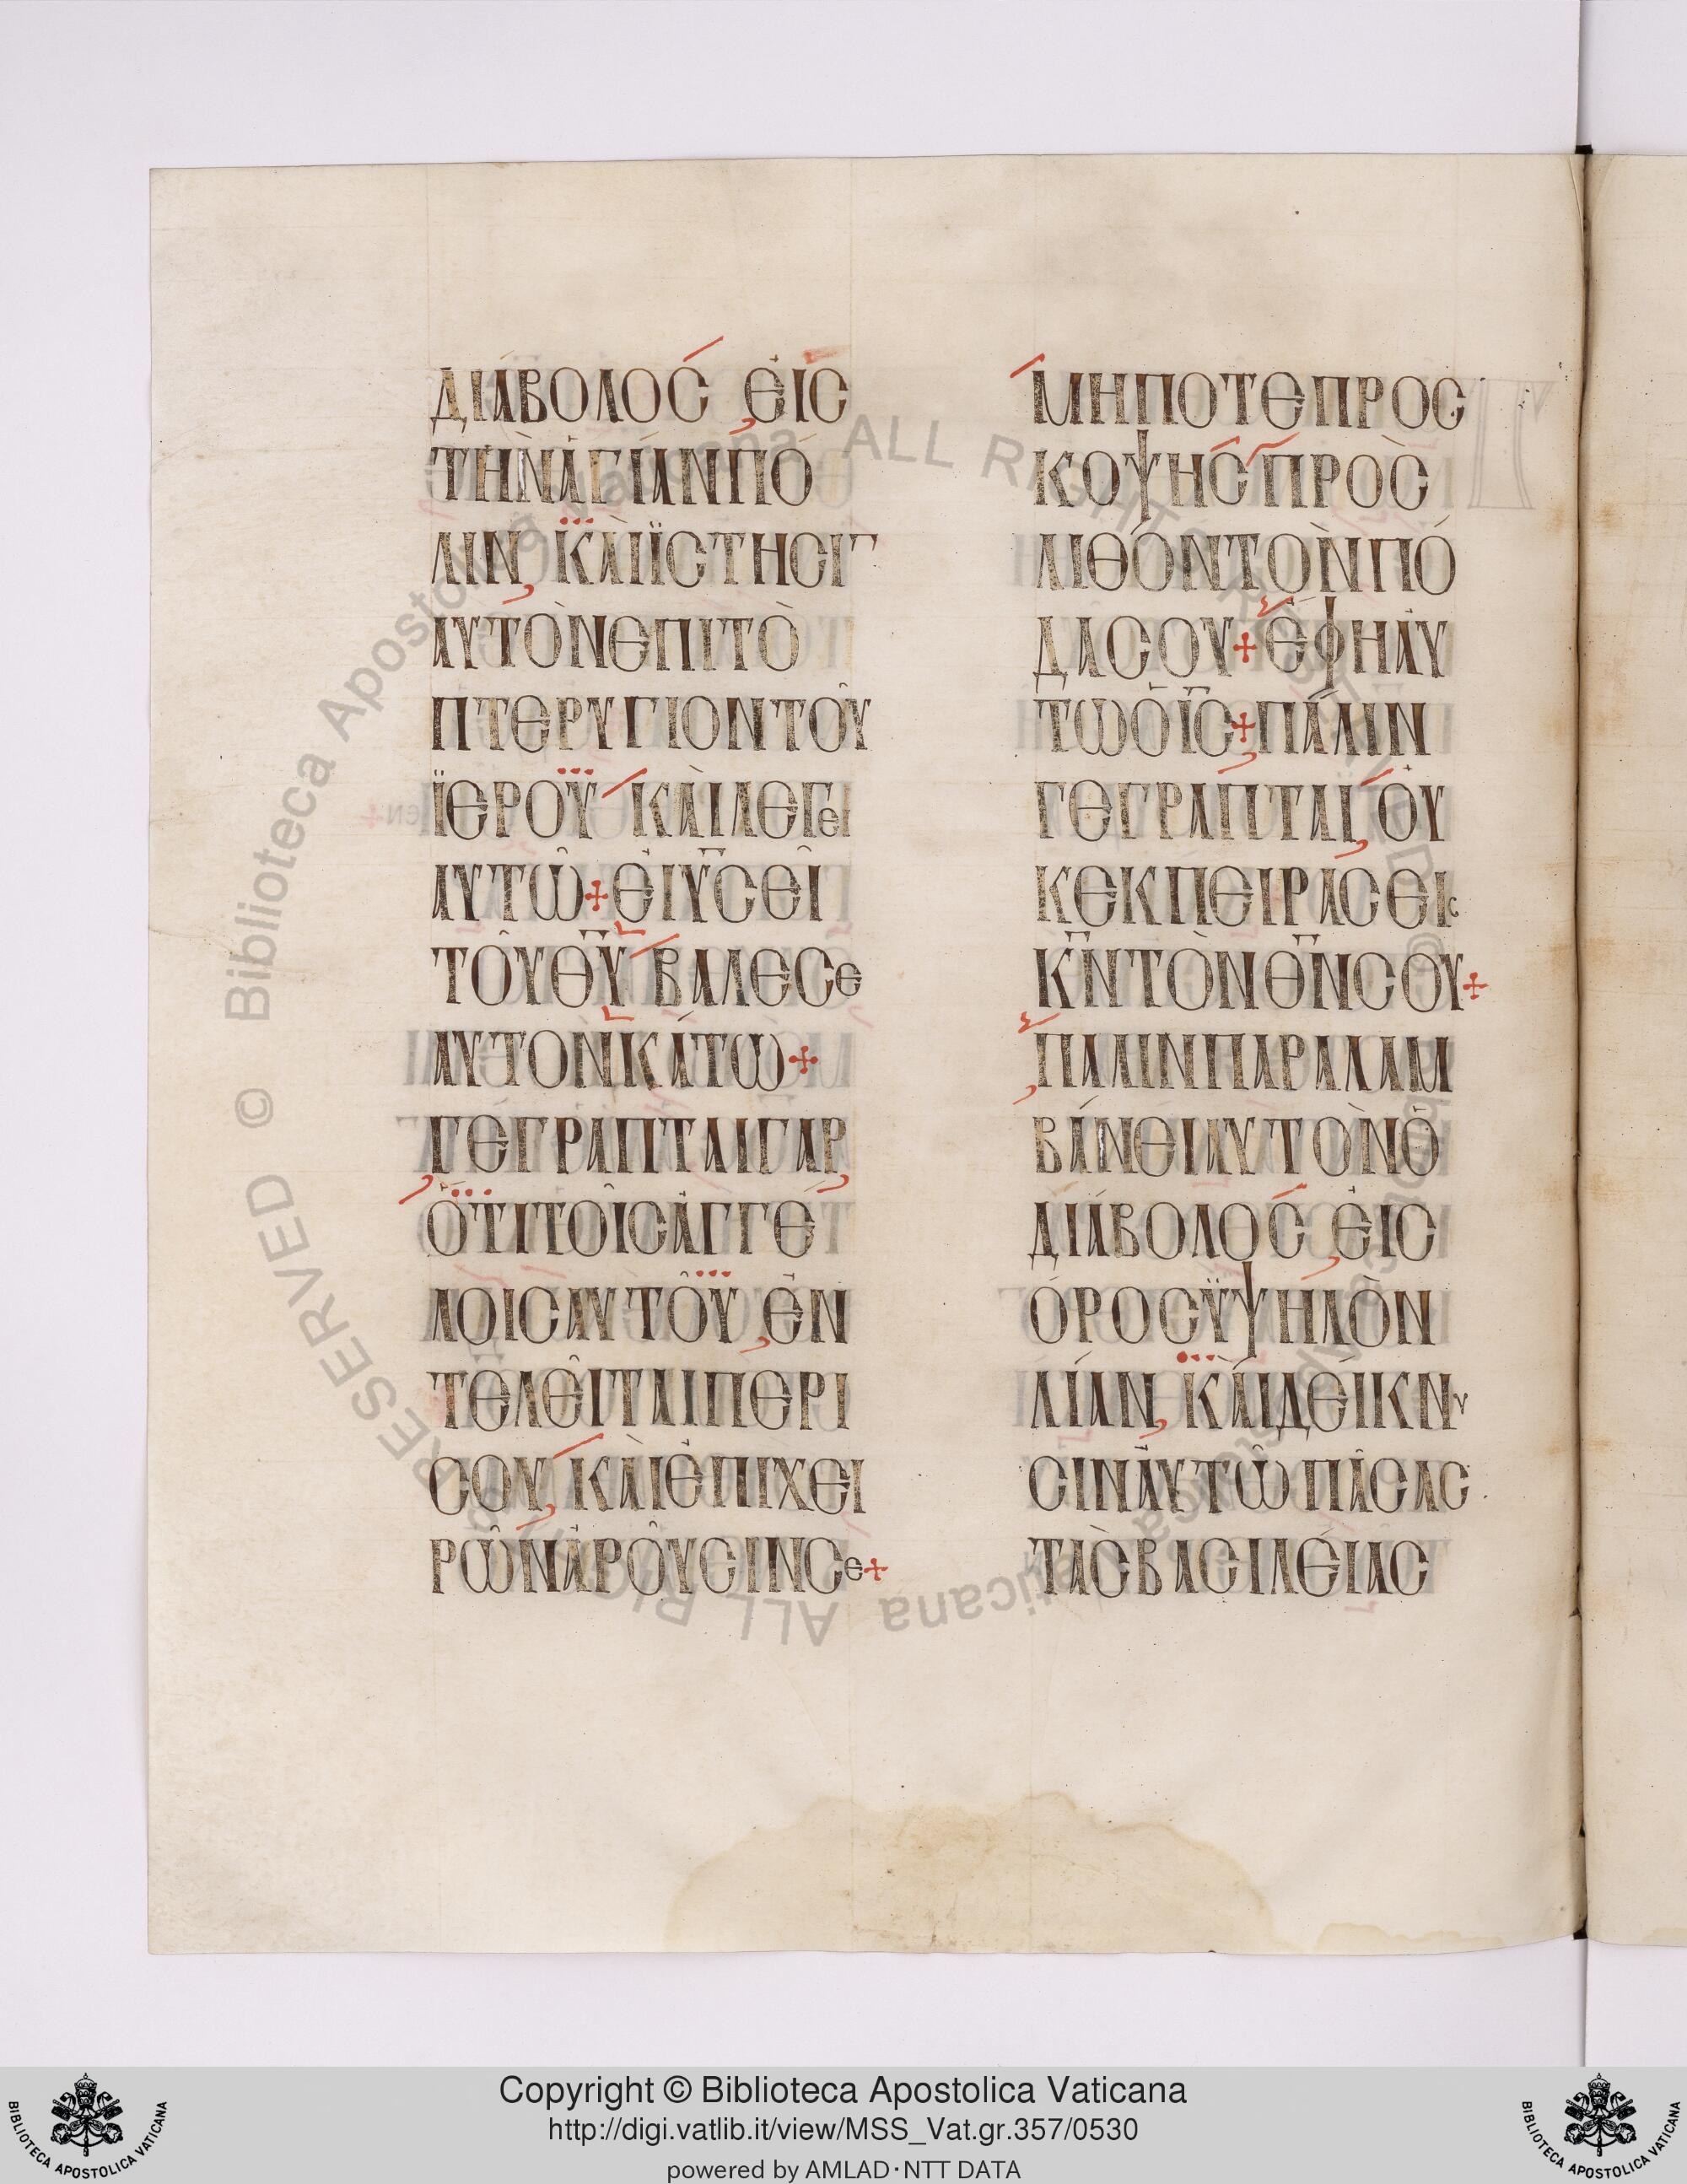 ΔΙΆΒΟΛΟC ἘΙC
ΤῊΝἉΓΊΑΝΠΌ
ΛΙΝ, ΚᾺΙΪCΤΗCΙ
ΑΥΤῸΝΕΠΙΤῸ
ΠΤΕΡΥΓΙΟΝΤΟῦ
ΪΕΡΟῦ ΚᾺΙΛΕΓΕΙ
ΑΥΤῶ+ἘΙΥCΕῖ
ΤΟῦΘΥ ΒΑΛΕCΕ
ΑΥΤῸΝΚΆΤΩ+
ΓΈΓΡΑΠΤΑΙΓᾺΡ
ὍΤΙΤΟῖCἈΓΓΈ
ΛΟΙCΑΥΤΟῦ, ἘΝ
ΤΕΛΕῖΤΑΙΠΕΡΙ
CΟΥ, ΚᾺΙἘΠΙΧΕΙ
ΡῶΝἈΡΟῦCΙΝCΕ+
ΜΗΠΟΤΕΠΡΟC
ΚΟΨΗCΠΡῸC
ΛΙΘΟΝΤῸΝΠΌ
ΔΑCΟΥ+ἜΦΗἈΥ
ΤΩὉΙC+ΠΆΛΙΝ
ΓΕΓΡΑΠΤΑΙ, ΟΥ
ΚΕΚΠΕΙΡΑCΕΙC
ΚΝΤῸΝΘΝCΟΥ+
ΠΑΛΙΝΠΑΡΑΛΑΜ
ΒΆΝΕΙΑΥΤῸΝὉ
ΔΙΆΒΟΛΟC, ἘΙC
ΌΡΟCΫΨΗΛῸΝ
ΛΊΑΝ, ΚᾺΙΔΕΊΚΝΥ
CΙΝἈΥΤῶΠΆCΑC
ΤᾺCΒΑCΙΛΕΊΑC
© Biblioteca Apostolica Vaticana ALL RIGHTS RESERVED © Biblioteca Apostolica Vaticana ALL RIGHTS RESERVED
Copyright © Biblioteca Apostolica Vaticana
http://digi.vatlib.it/view/MSS_Vat.gr.357/0530
powered by AMLAD·NTT DATA
BIBLIOTECA APOSTOLICA VATICANA
BIBLIOTECA APOSTOLICA VATICANA